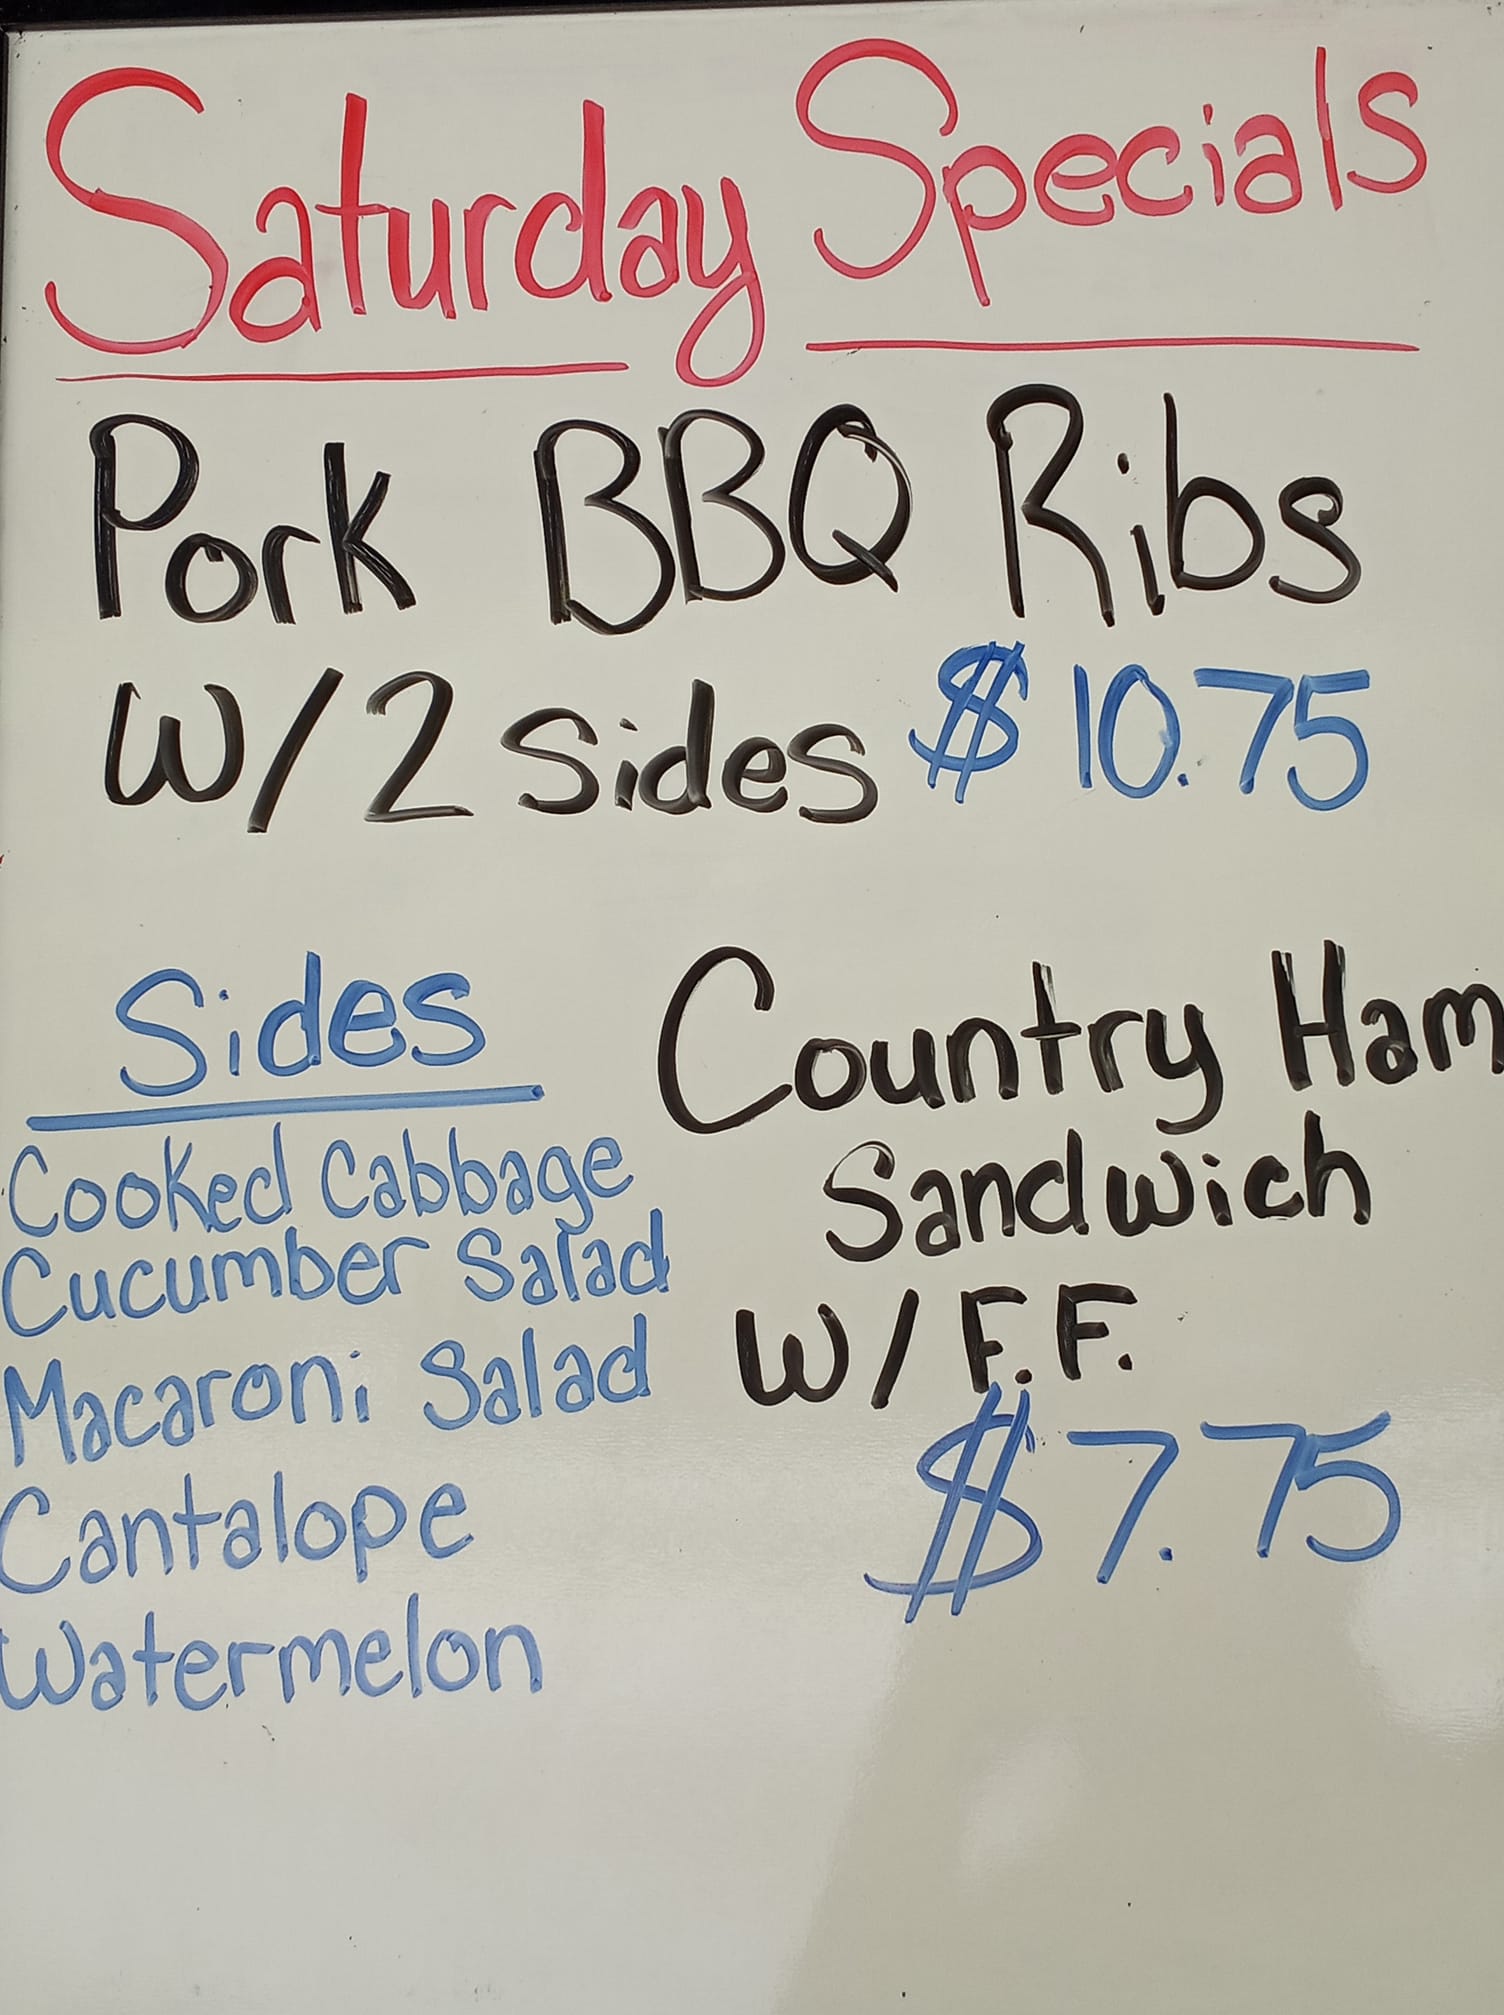 Saturday Specials
Pork BBQ Ribs
W/2 Sides $10.75
Sides
Cooked Cabbage
Cucumber Salad
Macaroni Salad
Cantalope
Watermelon
Country Ham
Sandwich
W/F.F.
$7.75